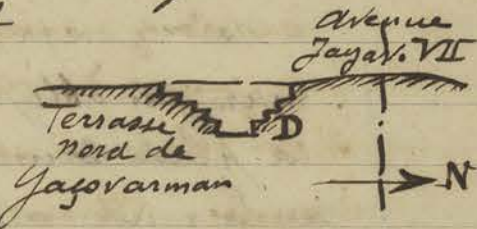 avenue
Jayav. VII
Terrasse
nord de
Yaçovarman
D
N